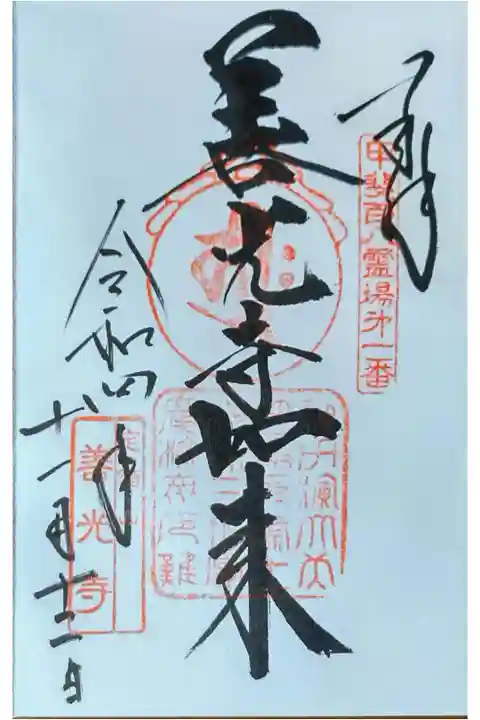 奉拝
甲斐百八霊場第一番
善光寺如来
令和四年
十一月十三日
定額山
善光寺